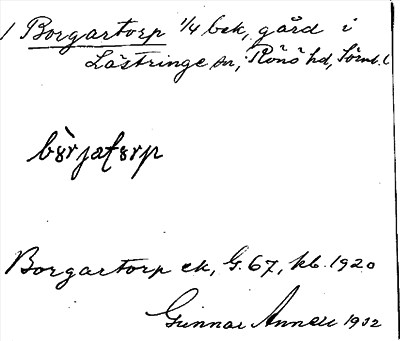 1 Borgartorp 1/4 bek, gård i
Lästringe sn, Rönö hd, Sörml.
bὸrjatorp
Borgartorp ek, G. 67, kb. 1920
Gunnar 1932